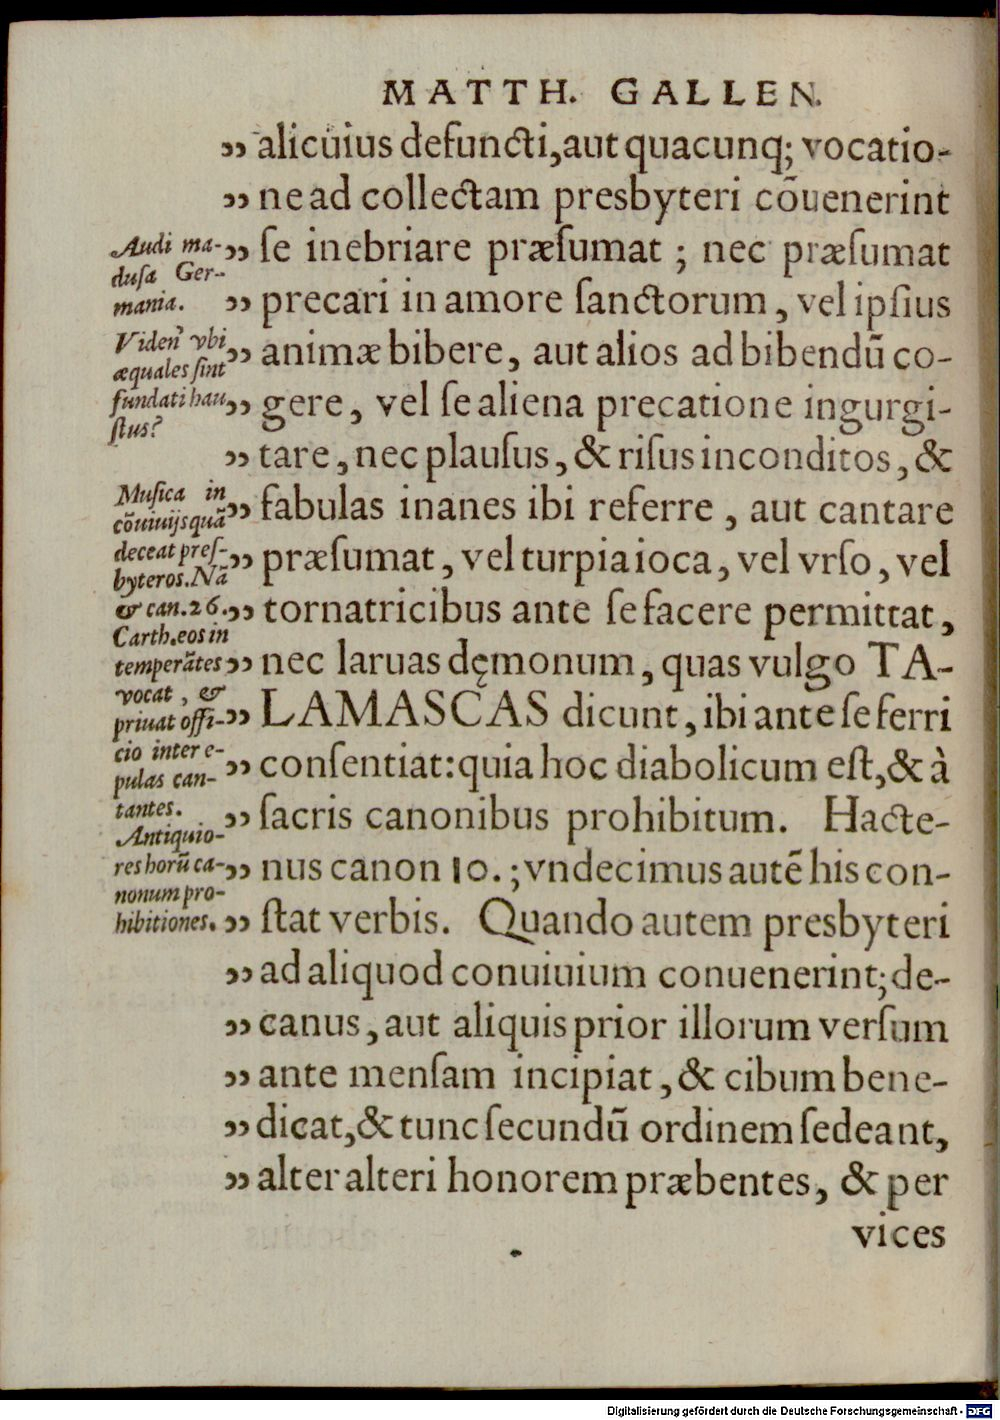 MATTH. GALLEN.
„ alicuius defuncti, aut quacunq; vocatio-
„ ne ad collectam presbyteri cõuenerint
„ ſe inebriare præſumat ; nec præſumat
„ precari in amore ſanctorum, vel ipſius
„ animæ bibere, aut alios ad bibendũ co-
„ gere, vel ſe aliena precatione ingurgi-
„ tare, nec plauſus, & riſus inconditos, &
„ fabulas inanes ibi referre, aut cantare
„ præſumat, vel turpia ioca, vel vrſo, vel
„ tornatricibus ante ſe facere permittat,
„ nec laruas dęmonum, quas vulgo TA-
„ LAMASCAS dicunt, ibi ante ſe ferri
„ conſentiat: quia hoc diabolicum eſt, & à
„ ſacris canonibus prohibitum. Hacte-
„ nus canon 10. ; vndecimus autẽ his con-
„ ſtat verbis. Quando autem presbyteri
„ ad aliquod conuiuium conuenerint; de-
„ canus, aut aliquis prior illorum verſum
„ ante menſam incipiat, & cibum bene-
„ dicat, & tunc ſecundũ ordinem ſedeant,
„ alter alteri honorem præbentes, & per
vices
Audi ma-
duſa Ger-
mania.
Viden' vbi
æquales ſint
fundati hau
ſtus?
Muſica in
cõuiuijs quã
deceat preſ-
byteros. Nã
& can. 26.
Carth. eos in
temperãtes
vocat, &
priuat offi-
cio inter e-
pulas can-
tantes.
Antiquio-
res horũ ca-
nonum pro-
hibitiones.
Digitalisierung gefördert durch die Deutsche Forschungsgemeinschaft - DFG